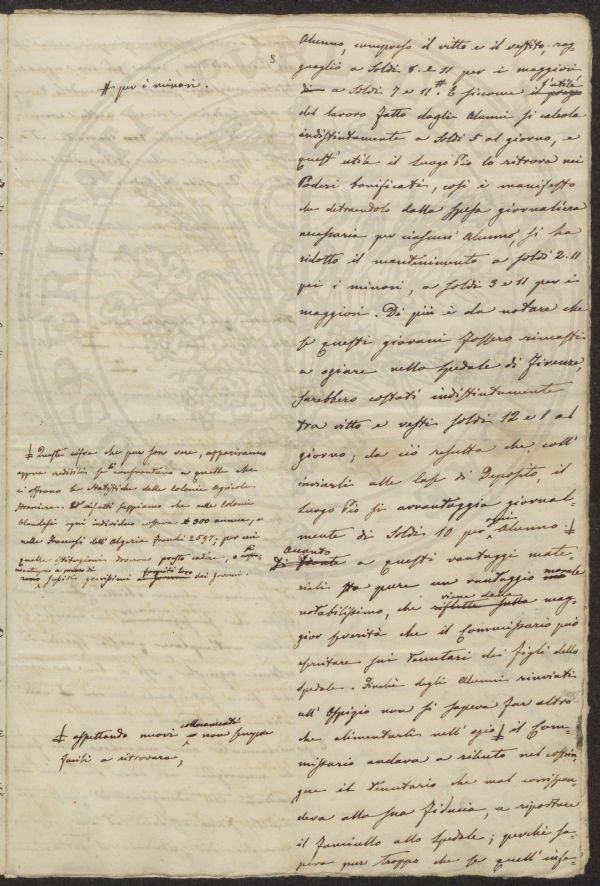 8
Alunno, compreso il vitto e il vestito, rag
guagliò a Soldi 8. e 11 per i maggiori
a Soldi 7 e 11 #. E siccome l'utile
# per i minori.
del lavoro fatto dagli Alunni si calcola
indistintamente a Soldi 5 al giorno, e
quest'utile il Luogo Pio lo ritrova nei
Poderi bonificati, così è manifesto
che detraendolo dalla spesa giornaliera
necessaria per ciascun' Alunno, si ha
ridotto il mantenimento a soldi 2.11
pei i minori, a soldi 3 e 11 per i
maggiori. Di più è da notare che
se questi giovani fossero rimasti
a oziare nello spedale di Firenze,
sarebbero costati indistintamente
tra vitto e vesti soldi 12 e 1 al
giorno; da ciò resulta che coll'
inviarli alle Case di Deposito, il
Luogo Pio si avvantaggia giornal-
mente di Soldi 10 per Alunno. ‡
‡ Queste cifre che pur son vere, appariranno
appena credibili se confrontano a quelle che
ci offrono le Statistiche delle Colonie Agricole
straniere. Ed infatti sappiamo che nelle Colonie
Olandesi ogni individuo costava 300 annue, e
nelle Francesi dell'Algeria franchi 2597; per cui
quelle istituzioni dovevano presto cadere, o
mantenersi a sussidi gravissimi dei governi.
Quanto
a questi vantaggi mate
riali sta pure un vantaggio morale
notabilissimo, che viene dalla mag
gior severità che il Commissario può
esercitare sui tenutari dei figli dello
spedale. Finché degli Alunni rinviati
all'Ospizio non si sapeva far altro
che alimentarli nell'ozio ‡ il Com
missario andava a rilento nel costrin
gere il tenutario che mal corrispon
deva alla sua fiducia, a riportare
il fanciullo allo spedale; perché sa
peva pur troppo che se quell'infe-
‡ aspettando nuovi collocamenti non sempre
facili a ritrovare,